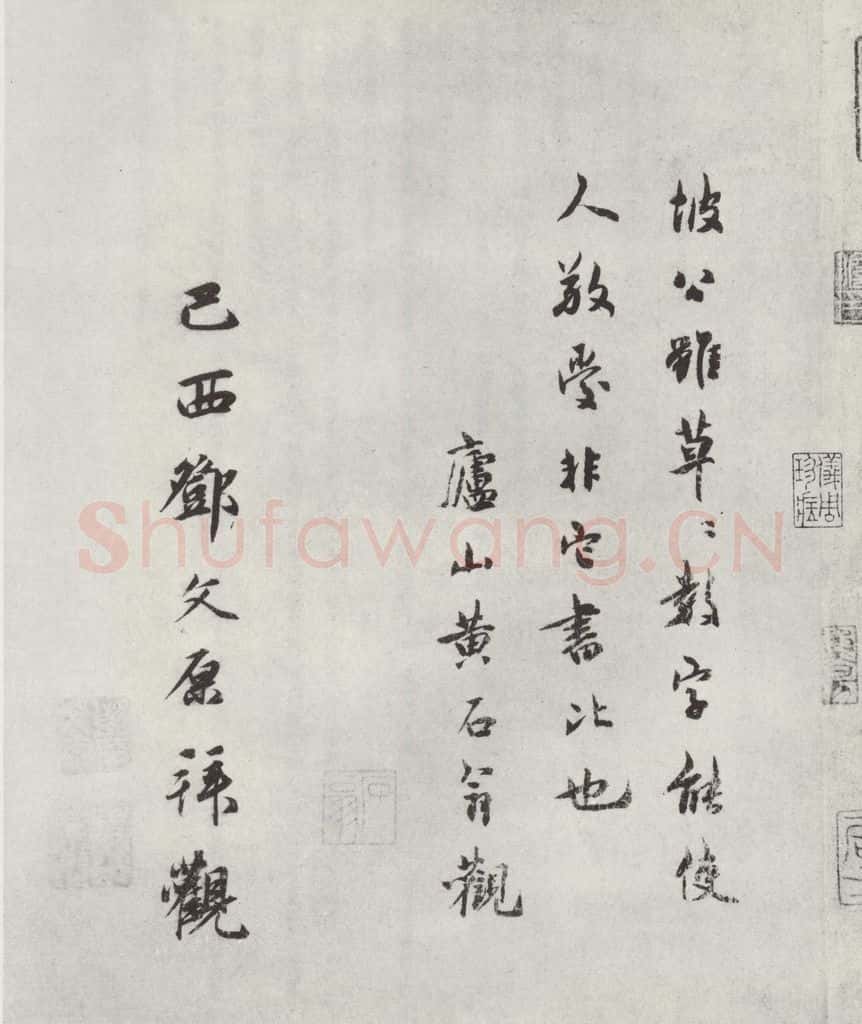 坡公雖草〻數字能使
人敬愛非它書比也
廬山黃石翁觀
己酉鄧文原拜觀
儀周珍藏
Shufawang.CN